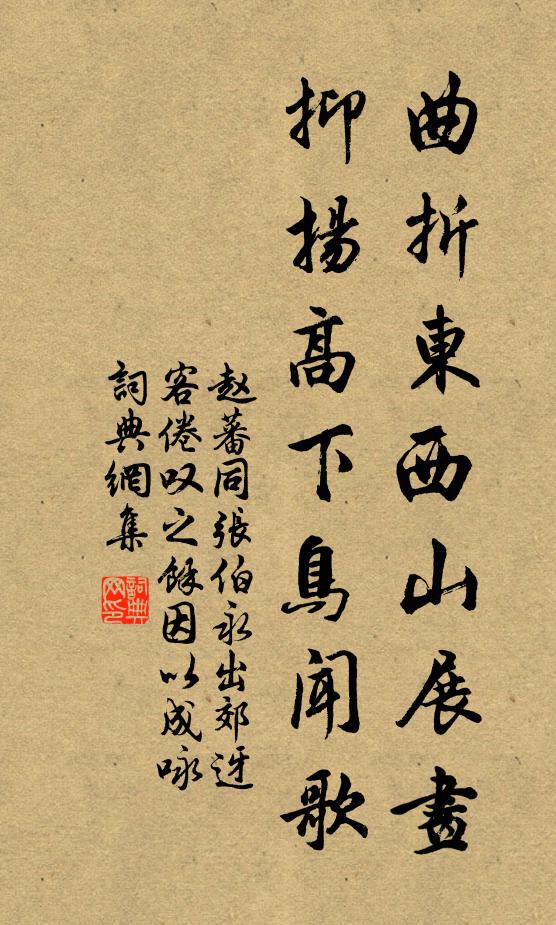 曲折東西山展畫
抑揚高下鳥聞歌
赵蕃同張伯永出郊迓
客倦叹之餘因以成咏
詞典網集
詞典网印